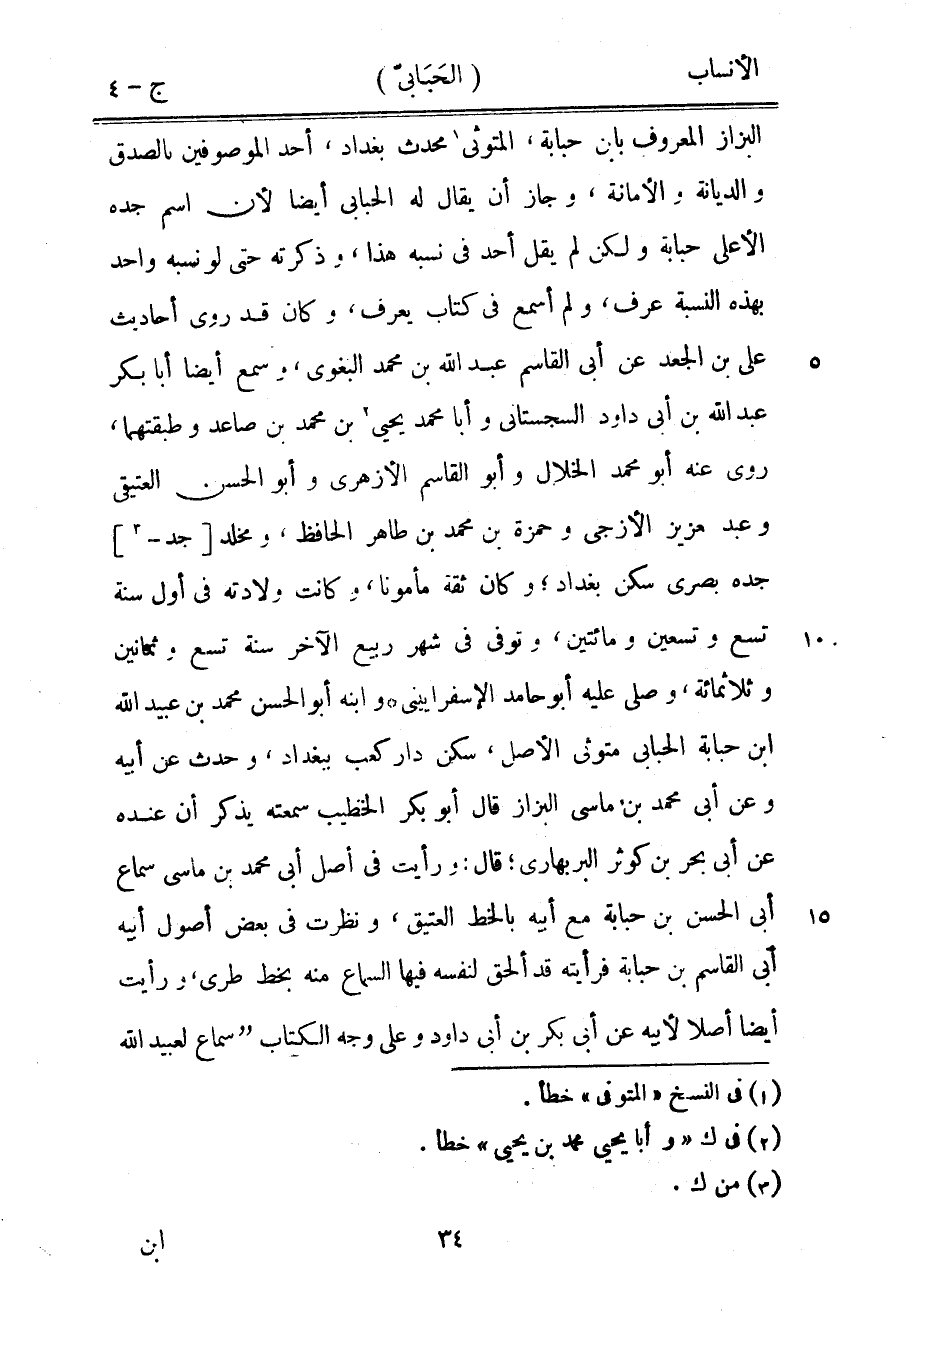 الأنساب (الحَبَابىّ) ج - ٤
البزاز المعروف بابن حبابة، المتوثى١ محدث بغداد، أحد الموصوفين بالصدق
و الديانة و الأمانة، و جاز أن يقال له الحبابى أيضا لأن اسم جده
الأعلى حبابة و لكن لم يقل أحد فى نسبه هذا، و ذكرته حتى لو نسبه واحد
بهذه النسبة عرف، و لم أسمع فى كتاب يعرف، و كان قد روى أحاديث
على بن الجعد عن أبى القاسم عبد الله بن محمد البغوى، و سمع أيضا أبا بكر ٥
عبد الله بن أبى داود السجستانى و أبا محمد يحيى٢ بن محمد بن صاعد و طبقتهما،
روى عنه أبو محمد الخلال و أبو القاسم الأزهرى و أبو الحسن العتيقى
و عبد عزيز الأزجى و حمزة بن محمد بن طاهر الحافظ، و مخلد [جد - ٣]
جده بصرى سكن بغداد؛ و كان ثقة مأمونا، و كانت ولادته فى أول سنة
تسع و تسعين و مائتين، و توفى فى شهر ربيع الآخر سنة تسع و ثمانين ١٠
و ثلاثمائة، و صلى عليه أبو حامد الإسفرايينى ٥ و ابنه أبو الحسن محمد بن عبيد الله
ابن حبابة الحبابى متوثى الأصل، سكن دار كعب ببغداد، و حدث عن أبيه
و عن أبى محمد بن ماسى البزاز قال أبو بكر الخطيب سمعته يذكر أن عنده
عن أبى بحر بن كوثر البربهارى؛ قال: و رأيت فى أصل أبى محمد بن ماسى سماع
أبى الحسن بن حبابة مع أبيه بالخط العتيق، و نظرت فى بعض أصول أبيه ١٥
أبى القاسم بن حبابة فرأيته قد ألحق لنفسه فيها السماع منه بخط طرى، و رأيت
أيضا أصلا لأبيه عن أبى بكر بن أبى داود و على وجه الكتاب ”سماع لعبيد الله
(١) فى النسخ «المتوفى» خطأ.
(٢) فى ك «و أبا يحيي محمد بن يحيي» خطأ.
(٣) من ك.
٣٤
ابن